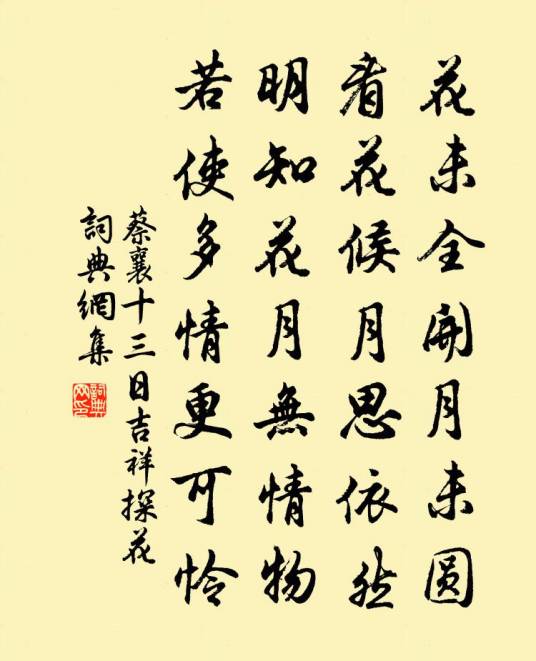 花未全開月未圓
看花候月思依然
明知花月無情物
若使多情更可憐
蔡襄十三日吉祥探花
詞典網集
詞典網印